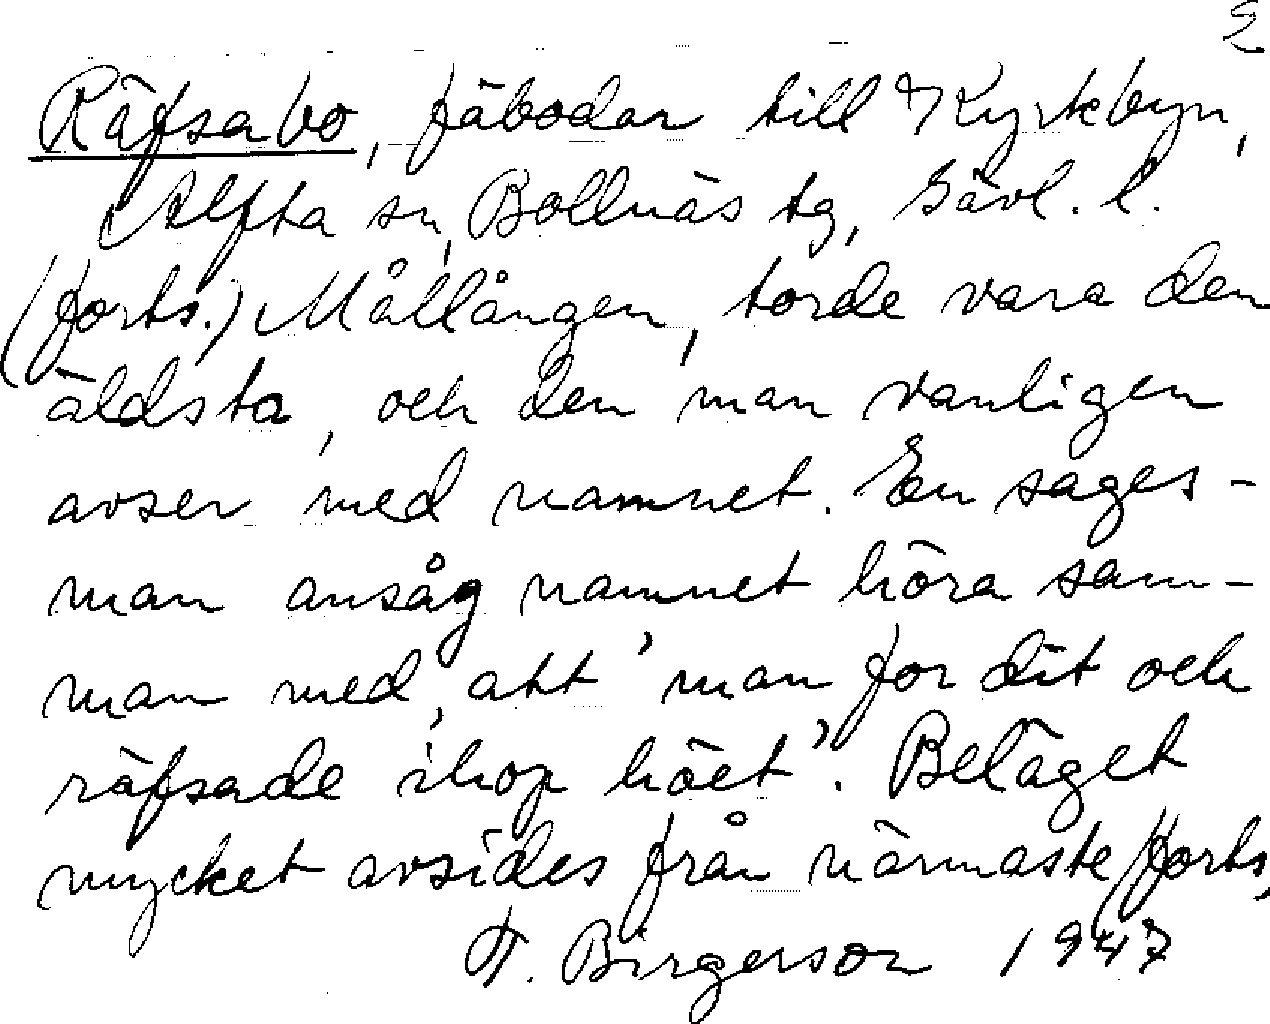 2
Räfsabo, fäbodar till Kyrkbyn,
Alfta sn, Bollnäs tg, Gävl. l.
(forts.) Mållången, torde vara den
äldsta, och den man vanligen
avser med namnet. En sages-
man ansåg namnet höra sam-
man med, att 'man for dit och
räfsade ihop höet'. Beläget
mycket avsides från närmaste /forts,
F. Birgerson 1947